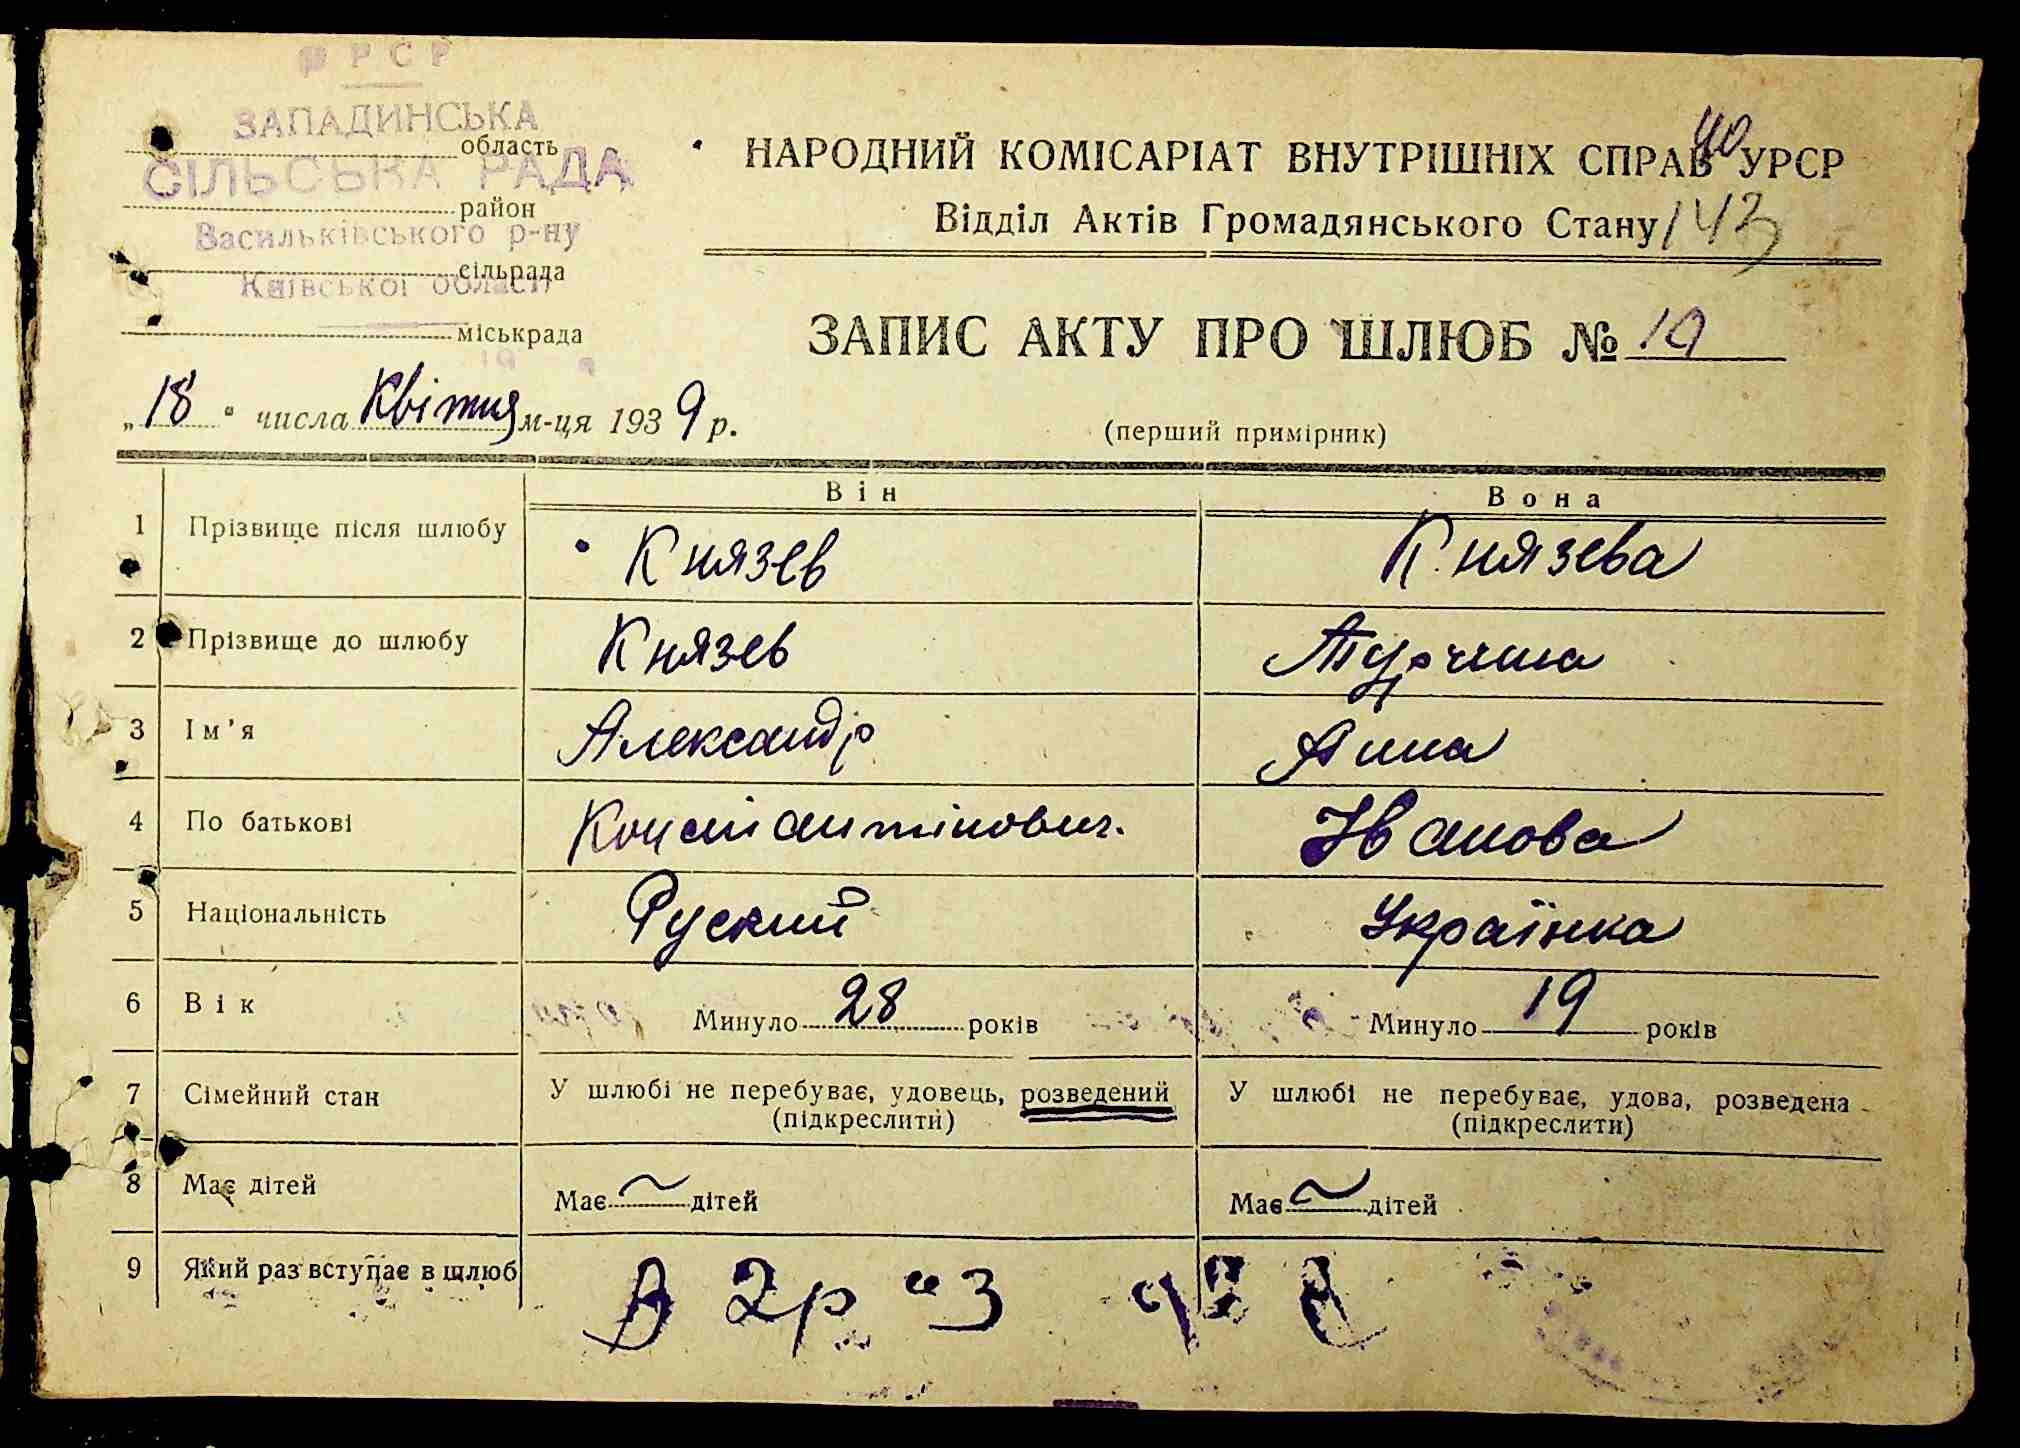 УРСР
ЗАПАДИНСЬКА
область
СІЛЬСЬКА РАДА
район
Васильківського р-ну
сільрада
Київської області
міськрада
40
НАРОДНИЙ КОМІСАРІАТ ВНУТРІШНІХ СПРАВ УРСР
Відділ Актів Громадянського Стану 143
ЗАПИС АКТУ ПРО ШЛЮБ № 19
„18" числа Квітня м-ця 1939 р.
(перший примірник)
Він Вона
1 Прізвище після шлюбу Князев Князева
2 Прізвище до шлюбу Князев Турчина
3 Ім'я Александр Анна
4 По батькові Константінович. Іванова
5 Національність Руский Українка
6 Вік Минуло 28 років Минуло 19 років
7 Сімейний стан У шлюбі не перебуває, удовець, розведений У шлюбі не перебуває, удова, розведена
(підкреслити) (підкреслити)
8 Має дітей Має ~ дітей Має ~ дітей
9 Який раз вступає в шлюб В 2 раз